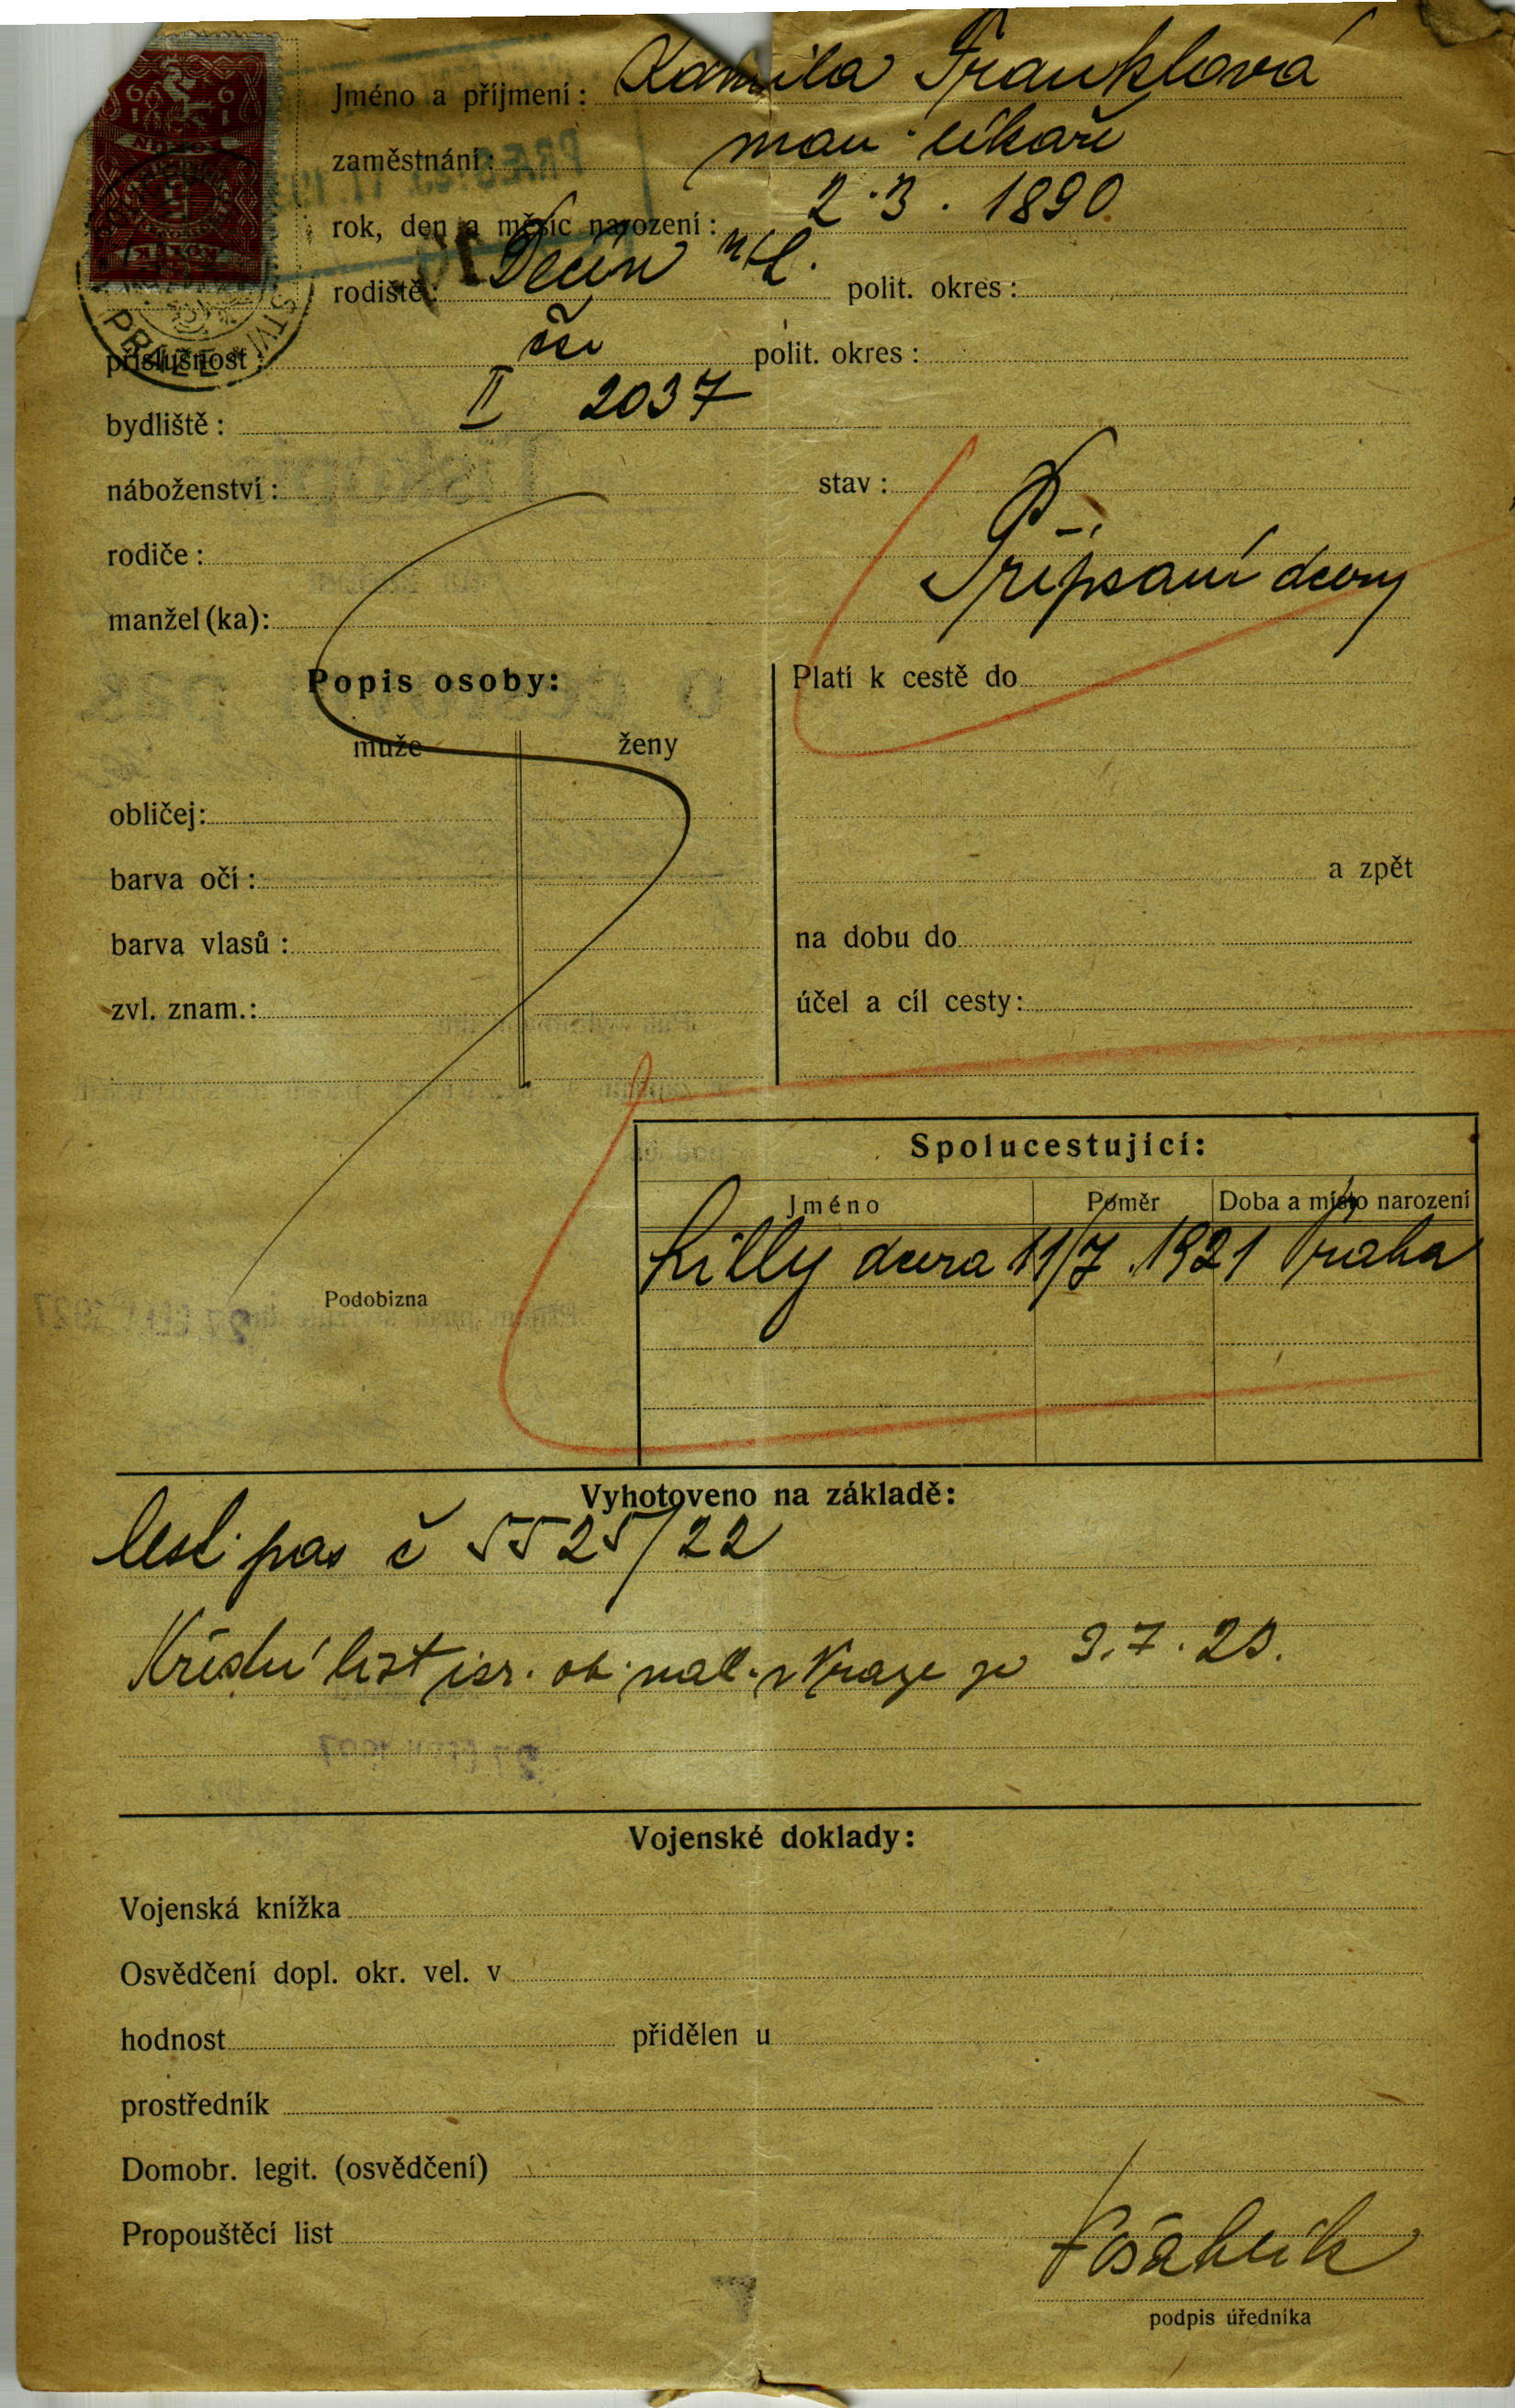 Jméno a příjmení: Kamila Franklová
zaměstnání: man. lékaře
rok, den a měsíc narození: 2.3. 1890
rodiště: Děčín n/L. polit. okres:
příslušnost: čsr polit. okres:
bydliště: II 2037
náboženství: stav:
rodiče: Připsaní dcery
manžel(ka):
Popis osoby:
muže ženy
obličej:
barva očí:
barva vlasů:
zvl. znam.:
Platí k cestě do
a zpět
na dobu do
účel a cíl cesty:
Spolucestující:
Jméno Poměr Doba a místo narození
Lilly dcera 11/7 1921 Praha
Podobizna
Vyhotoveno na základě:
cest. pas č 5525/22
Křestní list isr. ob. nál. v Praze ze 3.7.23.
Vojenské doklady:
Vojenská knížka
Osvědčení dopl. okr. vel. v
hodnost přidělen u
prostředník
Domobr. legit. (osvědčení)
Propouštěcí list
podpis úředníka